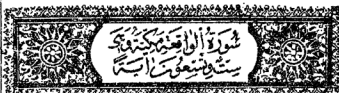 سورة الواقعة مكية وهي
ست وتسعون اية